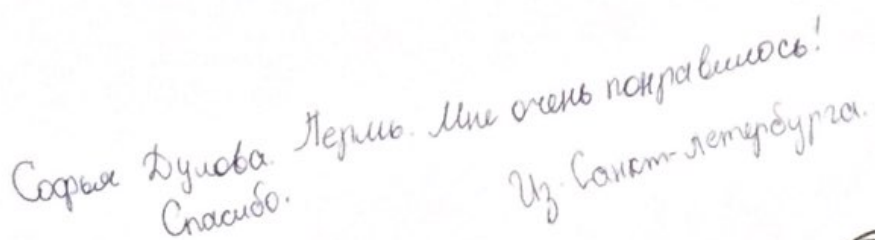 Софья Дулова. Пермь. Мне очень понравилось!
Спасибо.
Из Санкт-петербурга.